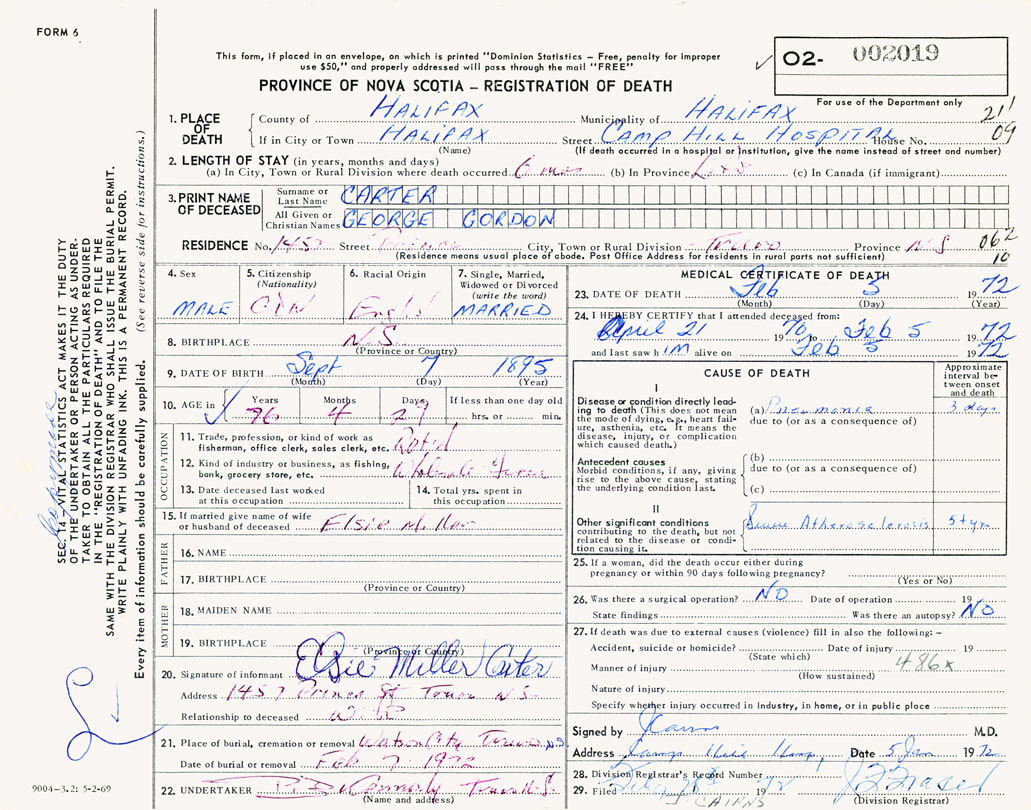 FORM 6
This form, if placed in an envelope, on which is printed "Dominion Statistics – Free, penalty for improper
use $50," and properly addressed will pass through the mail "FREE"
O2- 002019
For use of the Department only
PROVINCE OF NOVA SCOTIA – REGISTRATION OF DEATH
1. PLACE OF DEATH
County of HALIFAX Municipality of HALIFAX 21
If in City or Town HALIFAX Street CAMP HILL HOSPITAL House No. 09
(Name) (If death occurred in a hospital or institution, give the name instead of street and number)
2. LENGTH OF STAY (in years, months and days)
(a) In City, Town or Rural Division where death occurred 6 mos (b) In Province (c) In Canada (if immigrant)
3. PRINT NAME OF DECEASED
Surname or Last Name CARTER
All Given or Christian Names GEORGE GORDON
RESIDENCE No. 1457 Street City, Town or Rural Division Truro Province N.S 062
(Residence means usual place of abode. Post Office Address for residents in rural parts not sufficient) 10
4. Sex
MALE
5. Citizenship
(Nationality)
CDN
6. Racial Origin
7. Single, Married,
Widowed or Divorced
(write the word)
MARRIED
8. BIRTHPLACE N.S.
(Province or Country)
9. DATE OF BIRTH Sept 7 1895
(Month) (Day) (Year)
10. AGE in
Years Months Days If less than one day old
76 4 29 hrs. or min.
OCCUPATION
11. Trade, profession, or kind of work as
fisherman, office clerk, sales clerk, etc.
12. Kind of industry or business, as fishing,
bank, grocery store, etc. Wholesale
13. Date deceased last worked
at this occupation
14. Total yrs. spent in
this occupation
15. If married give name of wife
or husband of deceased Elsie Miller
FATHER
16. NAME
17. BIRTHPLACE
(Province or Country)
MOTHER
18. MAIDEN NAME
19. BIRTHPLACE
(Province or Country)
20. Signature of informant Elsie Miller Carter
Address 1457 Prince St Truro N.S.
Relationship to deceased Wife
21. Place of burial, cremation or removal Truro N.S
Date of burial or removal Feb 7 1972
22. UNDERTAKER
(Name and address)
MEDICAL CERTIFICATE OF DEATH
23. DATE OF DEATH Feb 5 1972
(Month) (Day) (Year)
24. I HEREBY CERTIFY that I attended deceased from:
April 21 1970 to Feb 5 1972
and last saw him alive on Feb 5 1972
CAUSE OF DEATH
Approximate
interval be-
tween onset
and death
I
Disease or condition directly lead-
ing to death (This does not mean
the mode of dying, e.g., heart fail-
ure, asthenia, etc. It means the
disease, injury, or complication
which caused death.)
(a) Pneumonia 3 days
due to (or as a consequence of)
Antecedent causes
Morbid conditions, if any, giving
rise to the above cause, stating
the underlying condition last.
(b)
due to (or as a consequence of)
(c)
II
Other significant conditions
contributing to the death, but not
related to the disease or condi-
tion causing it.
Atherosclerosis 5+ yrs
25. If a woman, did the death occur either during
pregnancy or within 90 days following pregnancy?
(Yes or No)
26. Was there a surgical operation? NO Date of operation 19
State findings Was there an autopsy? NO
27. If death was due to external causes (violence) fill in also the following: –
Accident, suicide or homicide? Date of injury 19
(State which)
486x
Manner of injury
(How sustained)
Nature of injury
Specify whether injury occurred in Industry, in home, or in public place
Signed by J Cairns M.D.
Address Camp Hill Hosp, Date 5 1972
28. Division Registrar's Record Number
29. Filed 1972
J CAIRNS
(Division Registrar)
SEC. 14 – VITAL STATISTICS ACT MAKES IT THE DUTY
OF THE UNDERTAKER OR PERSON ACTING AS UNDER-
TAKER TO OBTAIN ALL THE PARTICULARS REQUIRED
IN THE "REGISTRATION OF DEATH" AND TO FILE THE
SAME WITH THE DIVISION REGISTRAR WHO SHALL ISSUE THE BURIAL PERMIT.
WRITE PLAINLY WITH UNFADING INK. THIS IS A PERMANENT RECORD.
Every item of information should be carefully supplied. (See reverse side for instructions.)
9004–3.2: 5-2-69